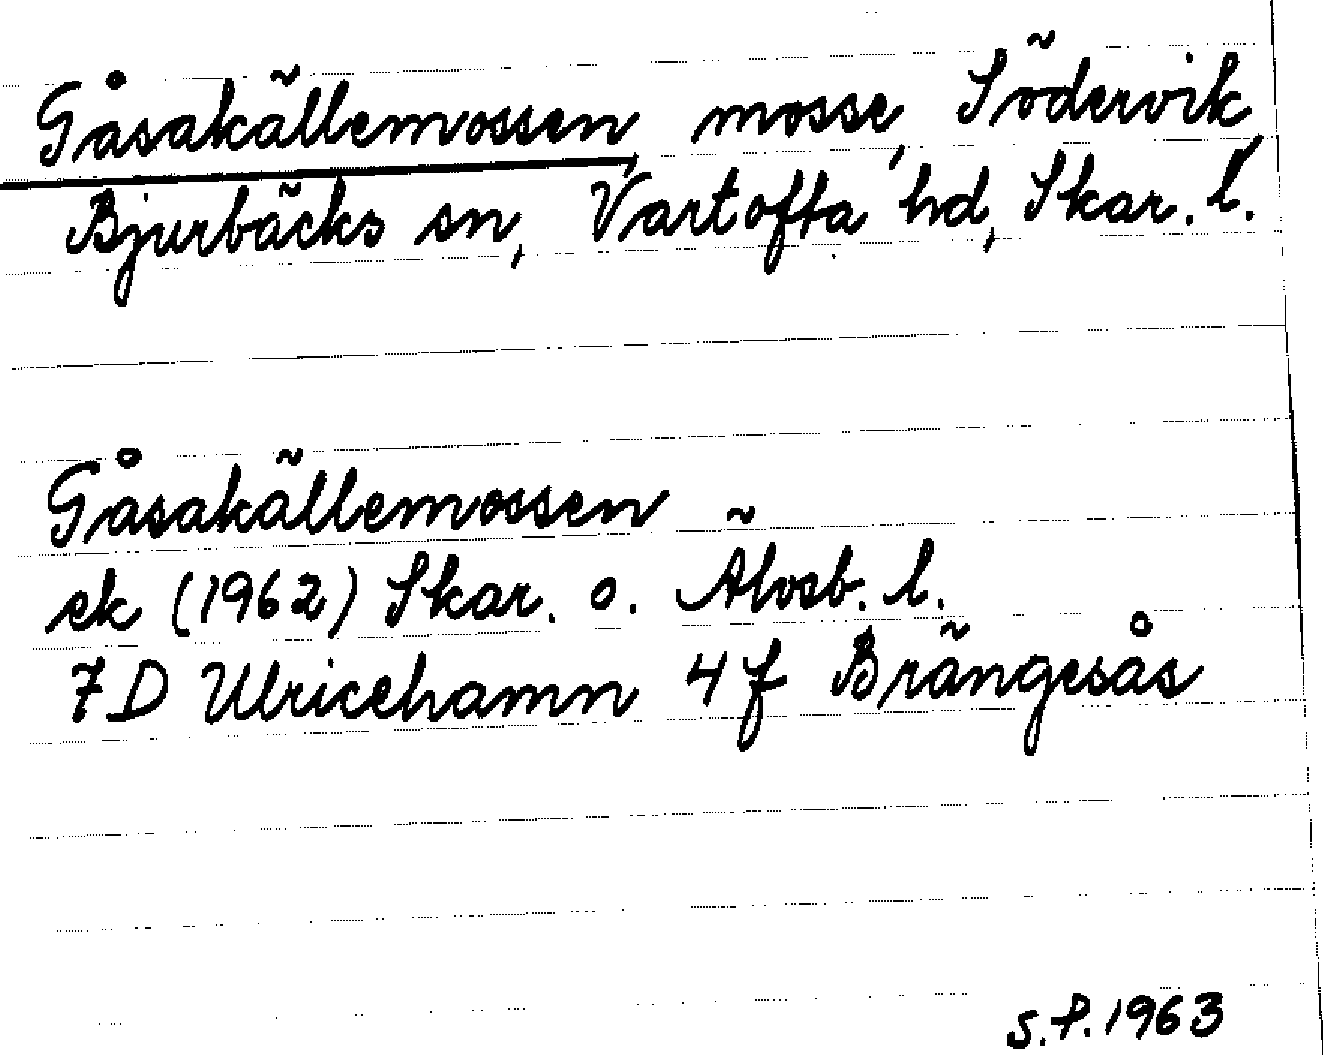 Gåsakällemossen, mosse, Södervik,
Bjurbäcks sn, Vartofta hd, Skar. l.
Gåsakällemossen
ek (1962) Skar. o. Älvsb. l.
7D Ulricehamn 4f Brängesås
S.P. 1963